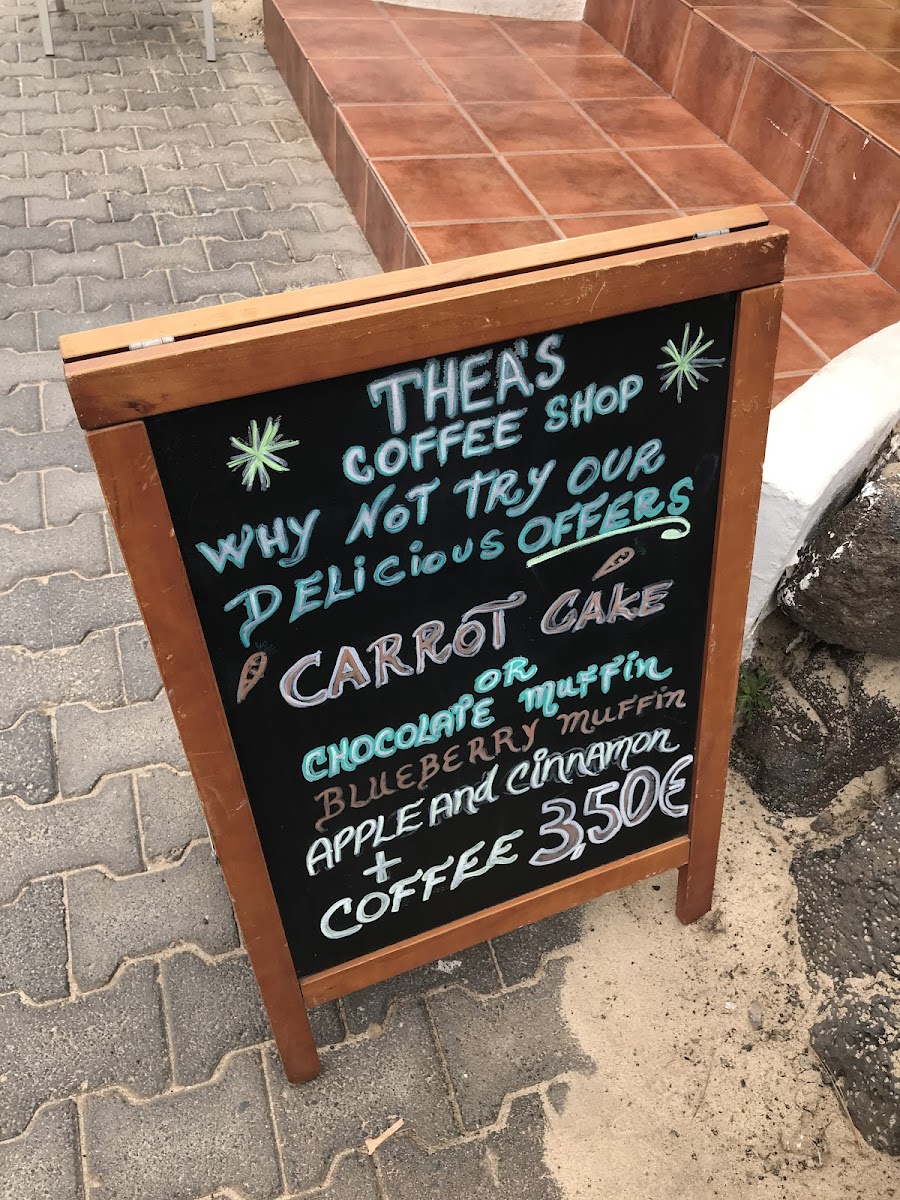 THEA'S
COFFEE SHOP
WHY NOT TRY OUR
DELICIOUS OFFERS
CARROT CAKE
OR
CHOCOLATE MUFFIN
BLUEBERRY MUFFIN
APPLE AND CINNAMON
+
COFFEE 3,50€